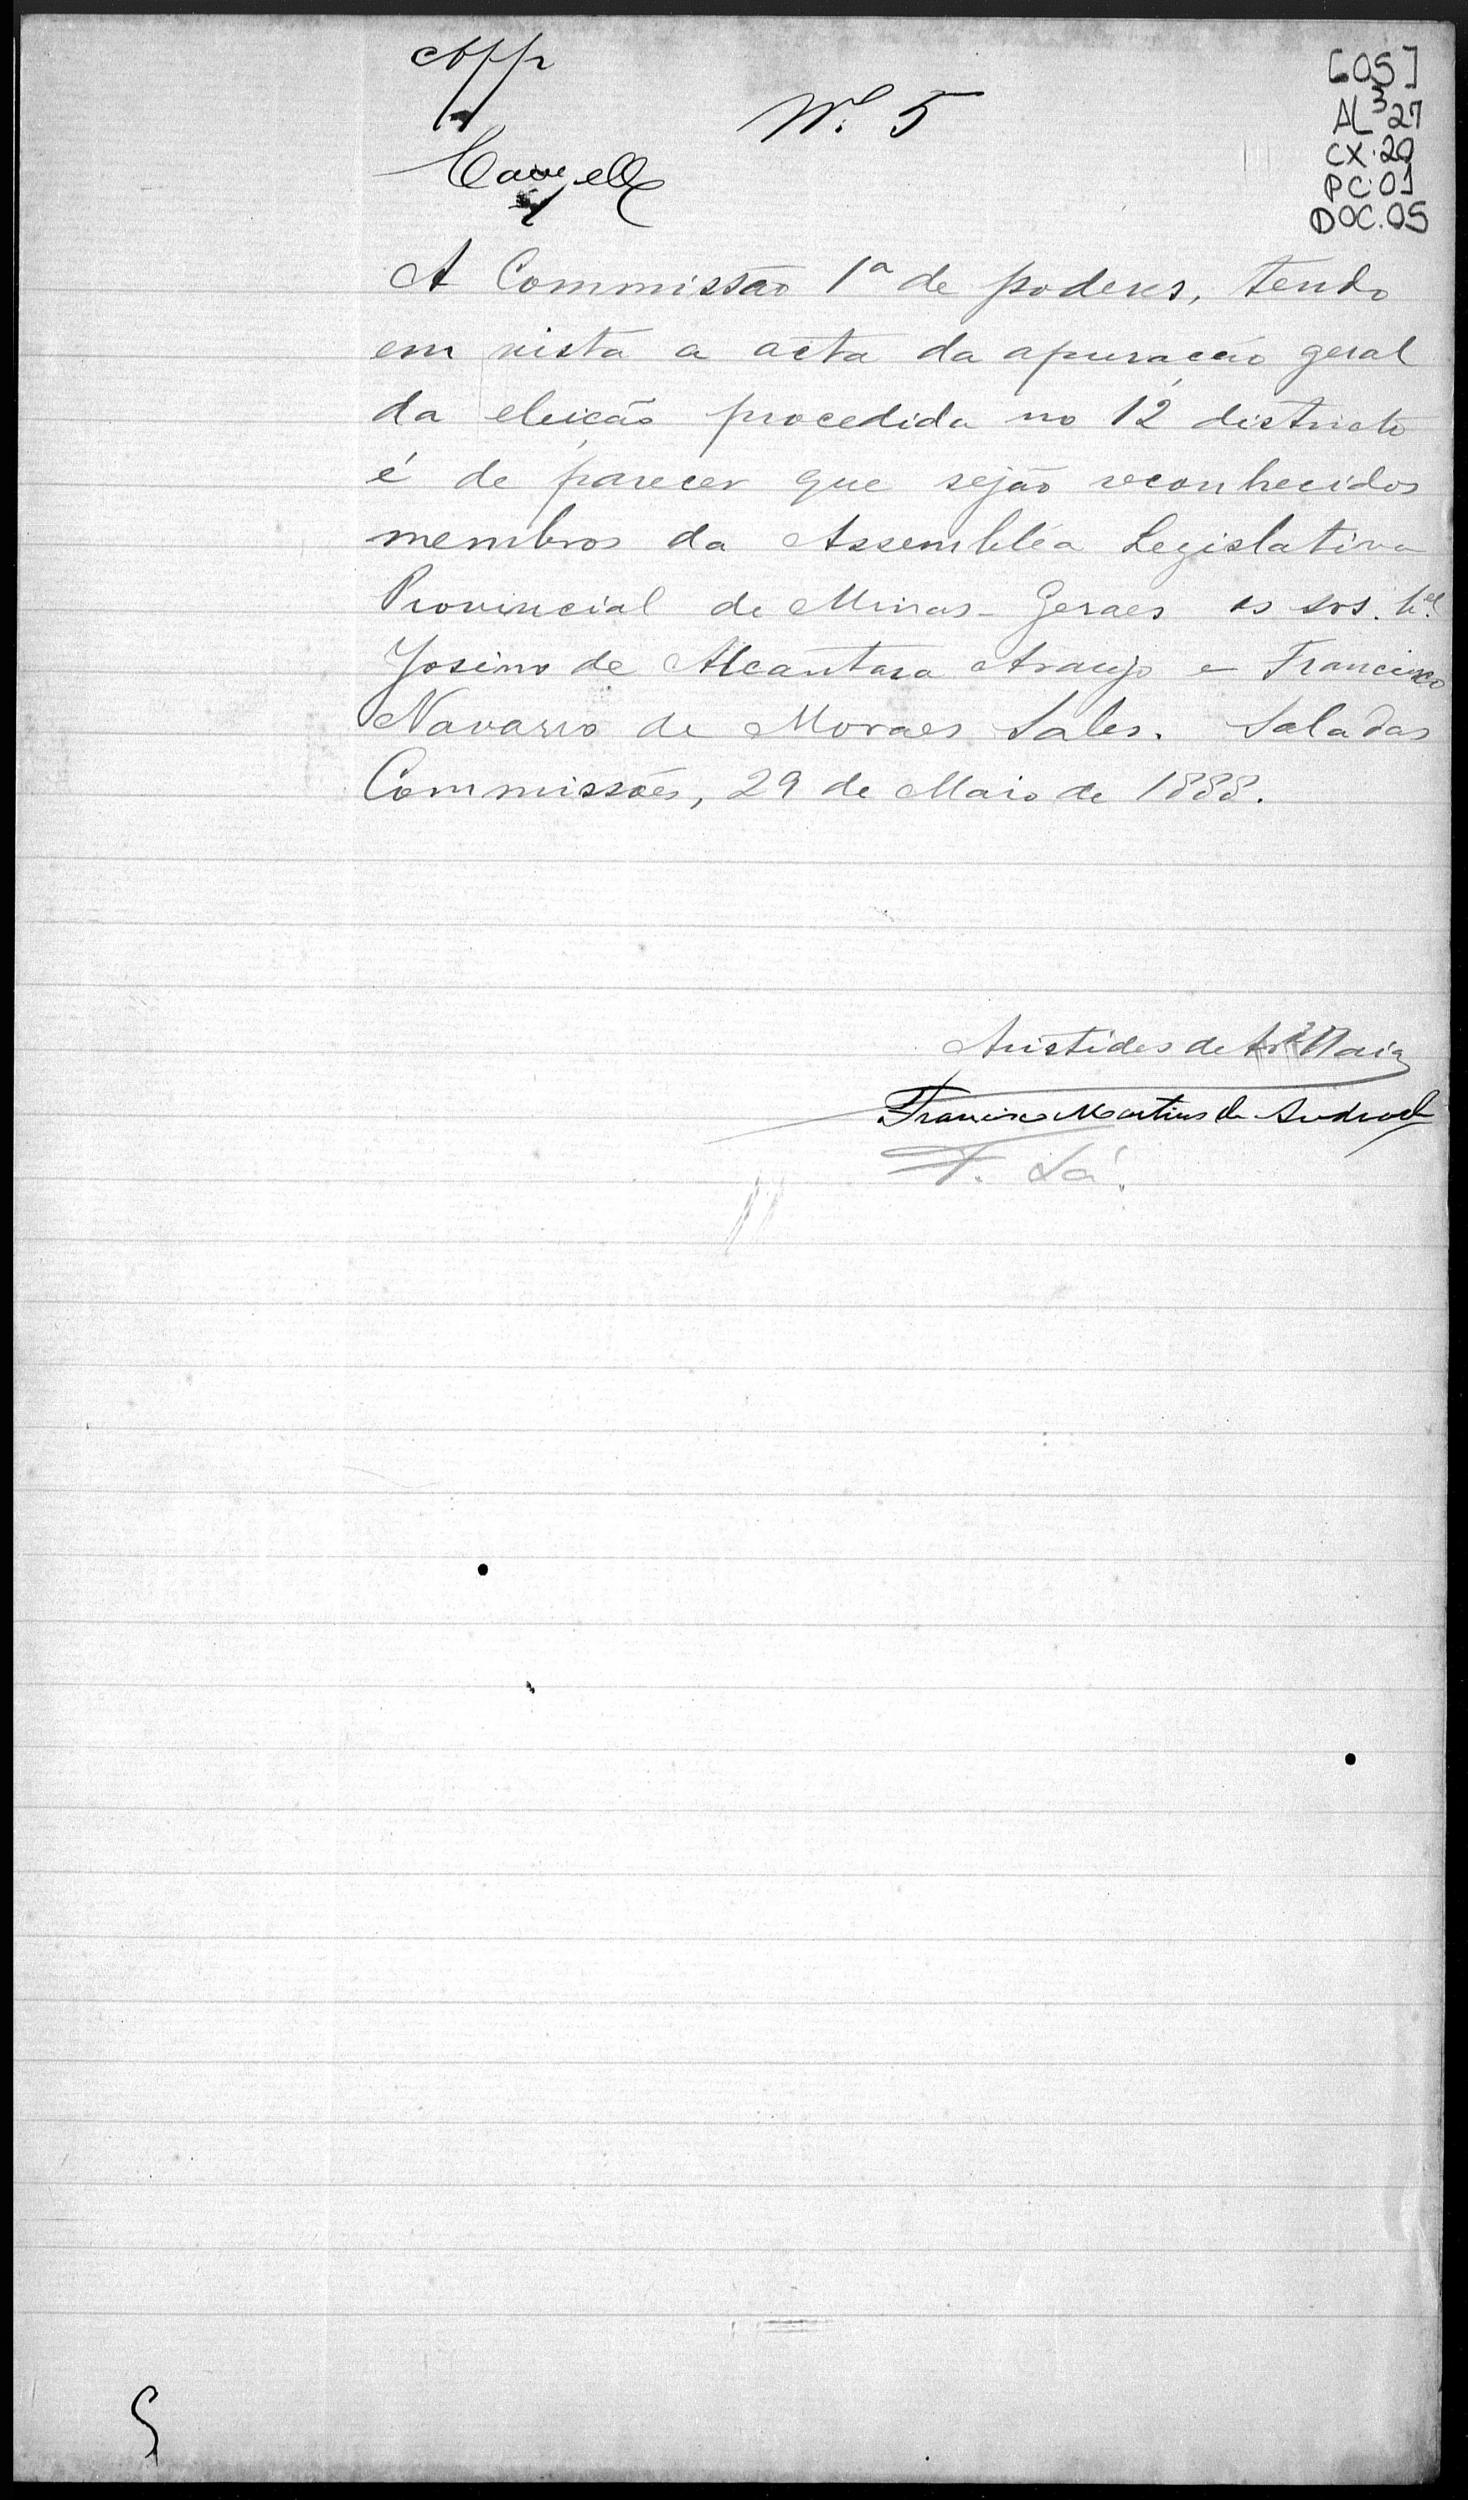 App
Nº 5
[05]
AL³27
CX.20
PC.01
DOC.05
A Commissão 1ª de poderes, tendo
em vista a acta da apuração geral
da eleição procedida no 12 districto
é de parecer que sejão reconhecidos
membros da Assembléa Legislativa
Provincial de Minas-Geraes os srs. b.el
Josino de Alcantara Araujo e Francisco
Navarro de Moraes Sales. Sala das
Commissões, 29 de Maio de 1888.
Aristides de Ar.º Maia
Francisco Martins de Andrade
F. Sá.
5